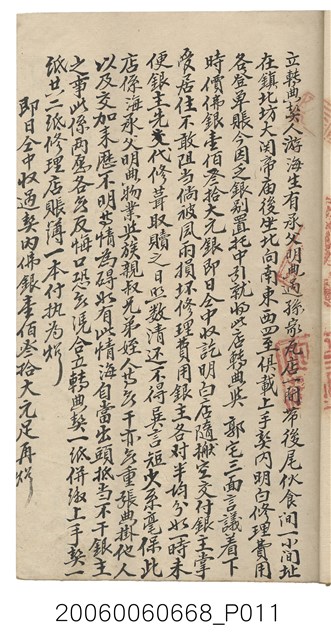 立轉典契人游海生有承父明典過孫家瓦店一間帶後尾伙食間一小間址
在鎮北坊大關帝庙後坐北向南東西四至俱載上手契內明白修理費用
各登草賬今因乏銀別置托中引就將此店轉典與 郭宅三面言議着下
時價佛銀壹佰叁拾大元銀即日仝中收訖明白店隨搬空交付銀主掌
居住不敢阻当倘被風雨損坏修理費用銀主各对半均分如一時未
便銀主先交代修葺取贖之日照数清还不得異言短少系毫保此
店係海承父明典物業與族親叔兄弟姪人等無干亦無重張典掛他人
以及交加來歷不明等情為碍如有此情海自當出頭抵当不干銀主
之事此係兩愿各無反悔口恐無憑合立轉典契一紙併繳上手契一
紙廿二紙修理店賬薄一本付执為炤
即日仝中收過契內佛銀壹佰叁拾大元足再炤
20060060668_P011